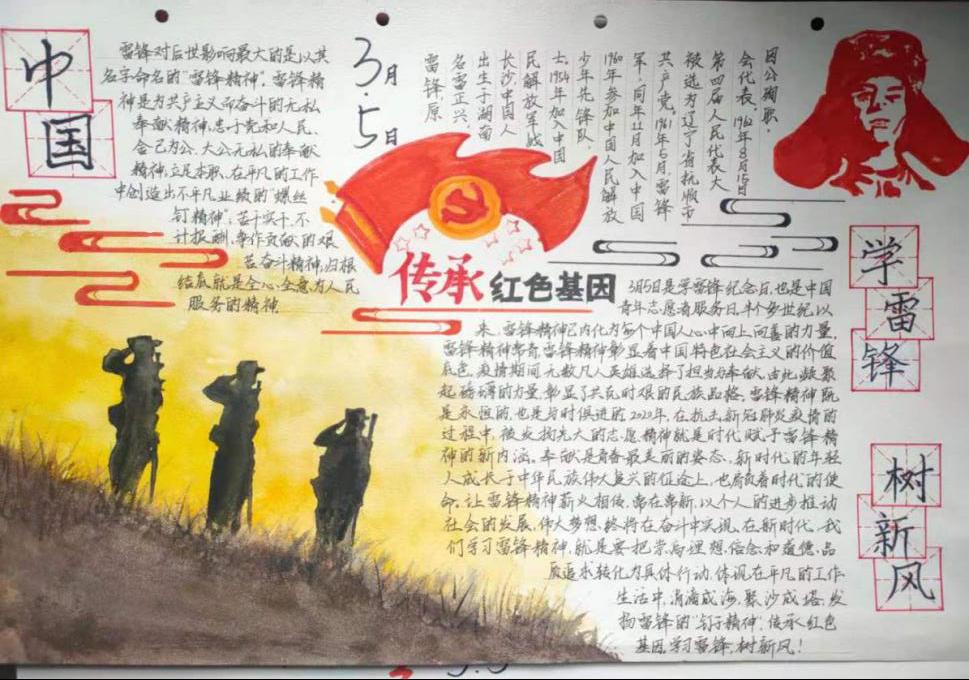 中国
雷锋对后世影响最大的是以其
名字命名的"雷锋精神"。雷锋精
神是为共产主义而奋斗的无私
奉献精神,忠于党和人民、
舍己为公、大公无私的奉献
精神,立足本职、在平凡的工作
中创造出不平凡业绩的"螺丝
钉精神",苦干实干、不
计报酬、争作贡献的艰
苦奋斗精神,归根
结底就是全心全意为人民
服务的精神
3月
5日
雷锋原
名雷正兴,
出生于湖南
长沙中国人
民解放军战
士,1954年加入中国
少年先锋队,
1960年参加中国人民解放
军,同年11月加入中国
共产党。1961年6月,雷锋
被选为辽宁省抚顺市
第四届人民代表大
会代表。1962年8月15日
因公殉职。
传承红色基因
3月5日是学雷锋纪念日,也是中国
青年志愿者服务日,半个多世纪以
来,雷锋精神已内化为每个中国人心中向上向善的力量,
雷锋精神常青,雷锋精神彰显着中国特色社会主义的价值
底色,疫情期间无数凡人英雄选择了担当与奉献,由此凝聚
起磅礴的力量,彰显了共克时艰的民族品格。雷锋精神既
是永恒的,也是与时俱进的,2020年,在抗击新冠肺炎疫情的
过程中,被发扬光大的志愿精神就是时代赋予雷锋精
神的新内涵。奉献是青春最美丽的姿态,新时代的年轻
人成长于中华民族伟大复兴的征途上,也肩负着时代的使
命。让雷锋精神薪火相传,常在常新,以个人的进步推动
社会的发展,伟大梦想,终将在奋斗中实现,在新时代,我
们学习雷锋精神,就是要把崇高理想信念和道德品
质追求转化为具体行动,体现在平凡的工作
生活中,涓滴成海,聚沙成塔,发
扬雷锋的"钉子精神",传承红色
基因,学习雷锋,树新风!
学雷锋
树新风